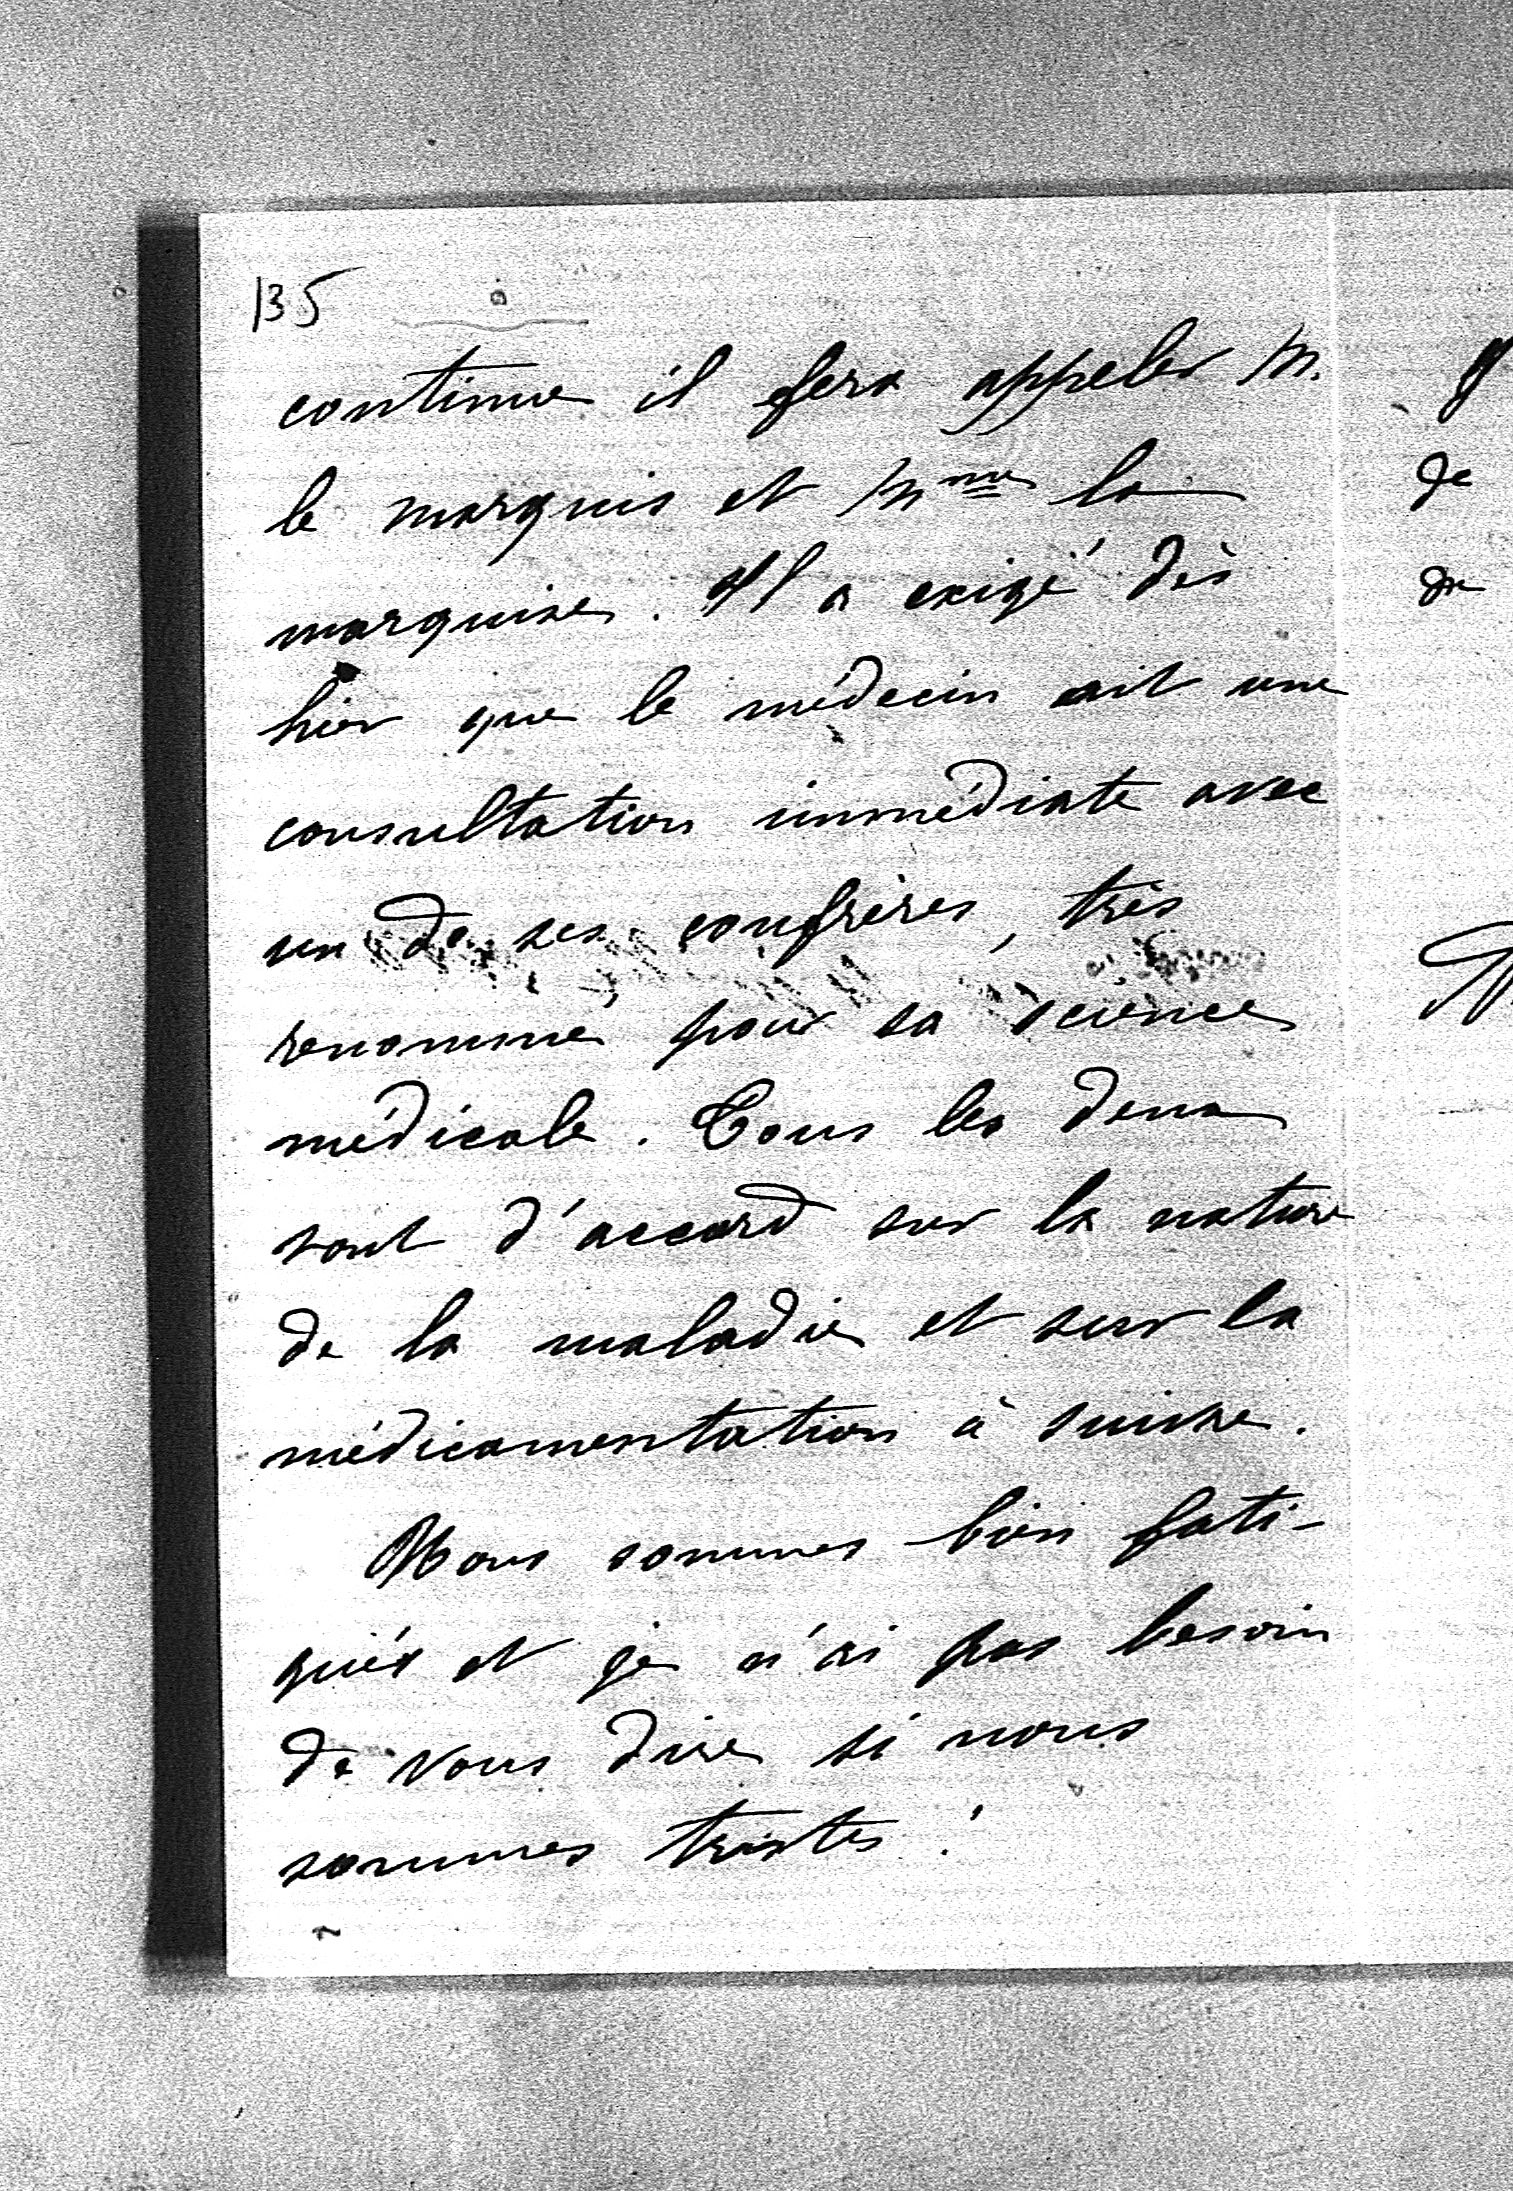 135
continue il fera appeler M.
le marquis et Mme la
marquise. Il a exigé dès
hier que le médecin ait une
consultation immédiate avec
un de ses confrères, très
renommé pour sa science
médicale. Tous les deux
sont d'accord sur la nature
de la maladie et sur la
médicamentation à suivre.
Nous sommes bien fati-
gués et je n'ai pas besoin
de vous dire si nous
sommes tristes !
de